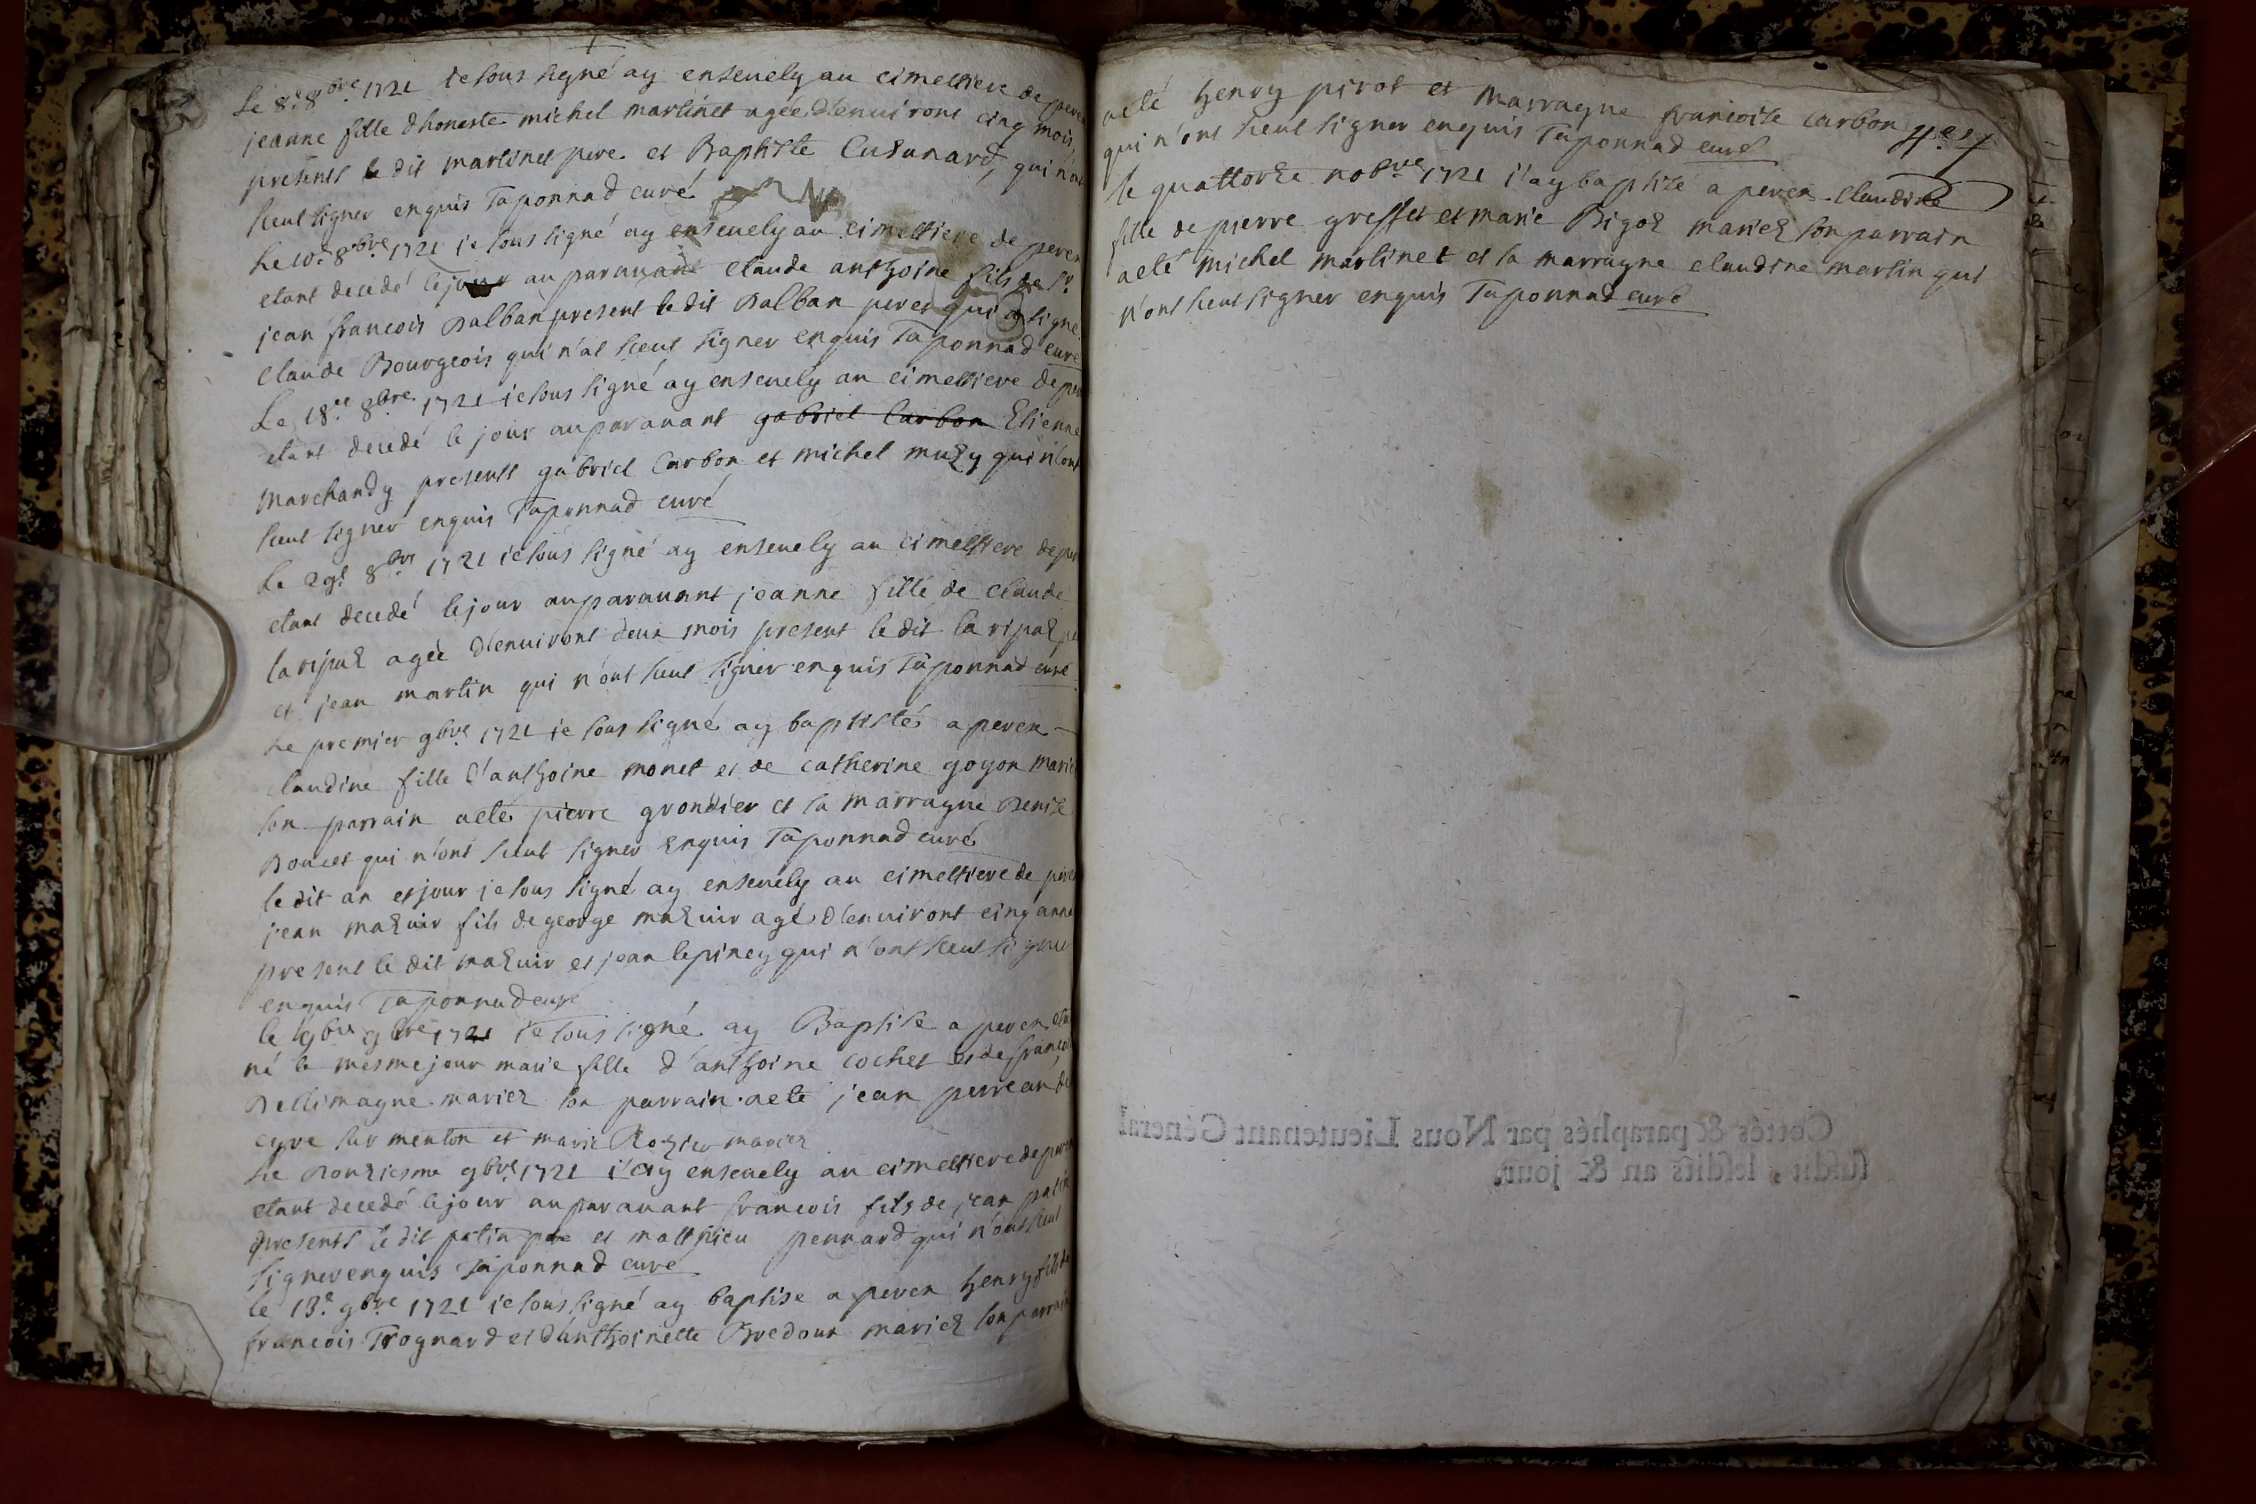 Le 8.e 8bre. 1721 ie sous signé ay enseuely au cimettiere de peren
jeanne fille dhoneste michel martinet agée d'enuiront cinq mois,
presents le dit martinet pere et Baptiste Cusanard, qui n'ont
sceut signer enquis Taponnad curé
Le 10.e 8bre 1721 ie sous signé ay enseuely au cimettiere de peren
etant decedé le jour auparauant claude anthoine fils de Sr.
jean francois Dalban present le dit Dalban pere qui a signé
claude Bourgeois qui n'at sceut signer enquis Taponnad curé
Le 18.e 8bre. 1721 ie sous signé ay enseuely au cimettiere de peren
etant decedé le jour auparauant gabriel Carbon Etienne
Marchandy presents gabriel Carbon et michel muzy qui n'ont
sceut signer enquis Taponnad curé
Le 29.e 8bre 1721 ie sous signé ay enseuely au cimettiere de peren
etant decedé le jour auparauant jeanne fille de claude
laripaz agée d'enuiront deux mois present le dit laripaz pe
et jean martin qui n'ont sceut signer enquis Taponnad curé
Le premier 9bre 1721 ie sous signé ay baptistés a peren
claudine fille d'anthoine monet et de catherine goyon marie
son parrain aeté pierre grondier et sa marragne Denise
Doucet qui n'ont sceut signer enquis Taponnad curé
le dit an et jour ie sous signé ay enseuely au cimettiere de peren
jean mazuir fils de george mazuir agé d'enuiront cinq anne
present le dit mazuir et jean lepiney qui n'ont sceut signer
enquis Taponnad curé
le 9bre 1721 ie sous signé ay Baptise a peren
né le mesme jour marie fille d'anthoine cochet et de francoi
Dellimagne mariez son parrain aeté jean perrean de
cyre sur menton et marie Rozier mariez
Le Douziesme 9bre 1721 i'ay enseuely au cimettiere de peren
etant decedé le jour auparauant francois fils de jean patin
presents le dit patin pere et matthieu pennard qui n'ont sceut
signer enquis Taponnad curé
le 13.e 9bre 1721 ie sous signé ay baptise a peren henry fils de
francois Trognard et d'anthoinette Bredoux mariez son parrain
aeté henry pirot et Marragne francoise carbon
qui n'ont sceut signer enquis Taponnad curé
le quattorze nobre 1721 i'ay baptizé a peren Claudine
fille de pierre greffet et marie Bigoz mariez son parrain
aeté michel martinet et sa marragne claudine martin qui
n'ont sceut signer enquis Taponnad curé
Cottés & paraphés par Nous Lieutenant Général
susdit, lesdits an & jour.